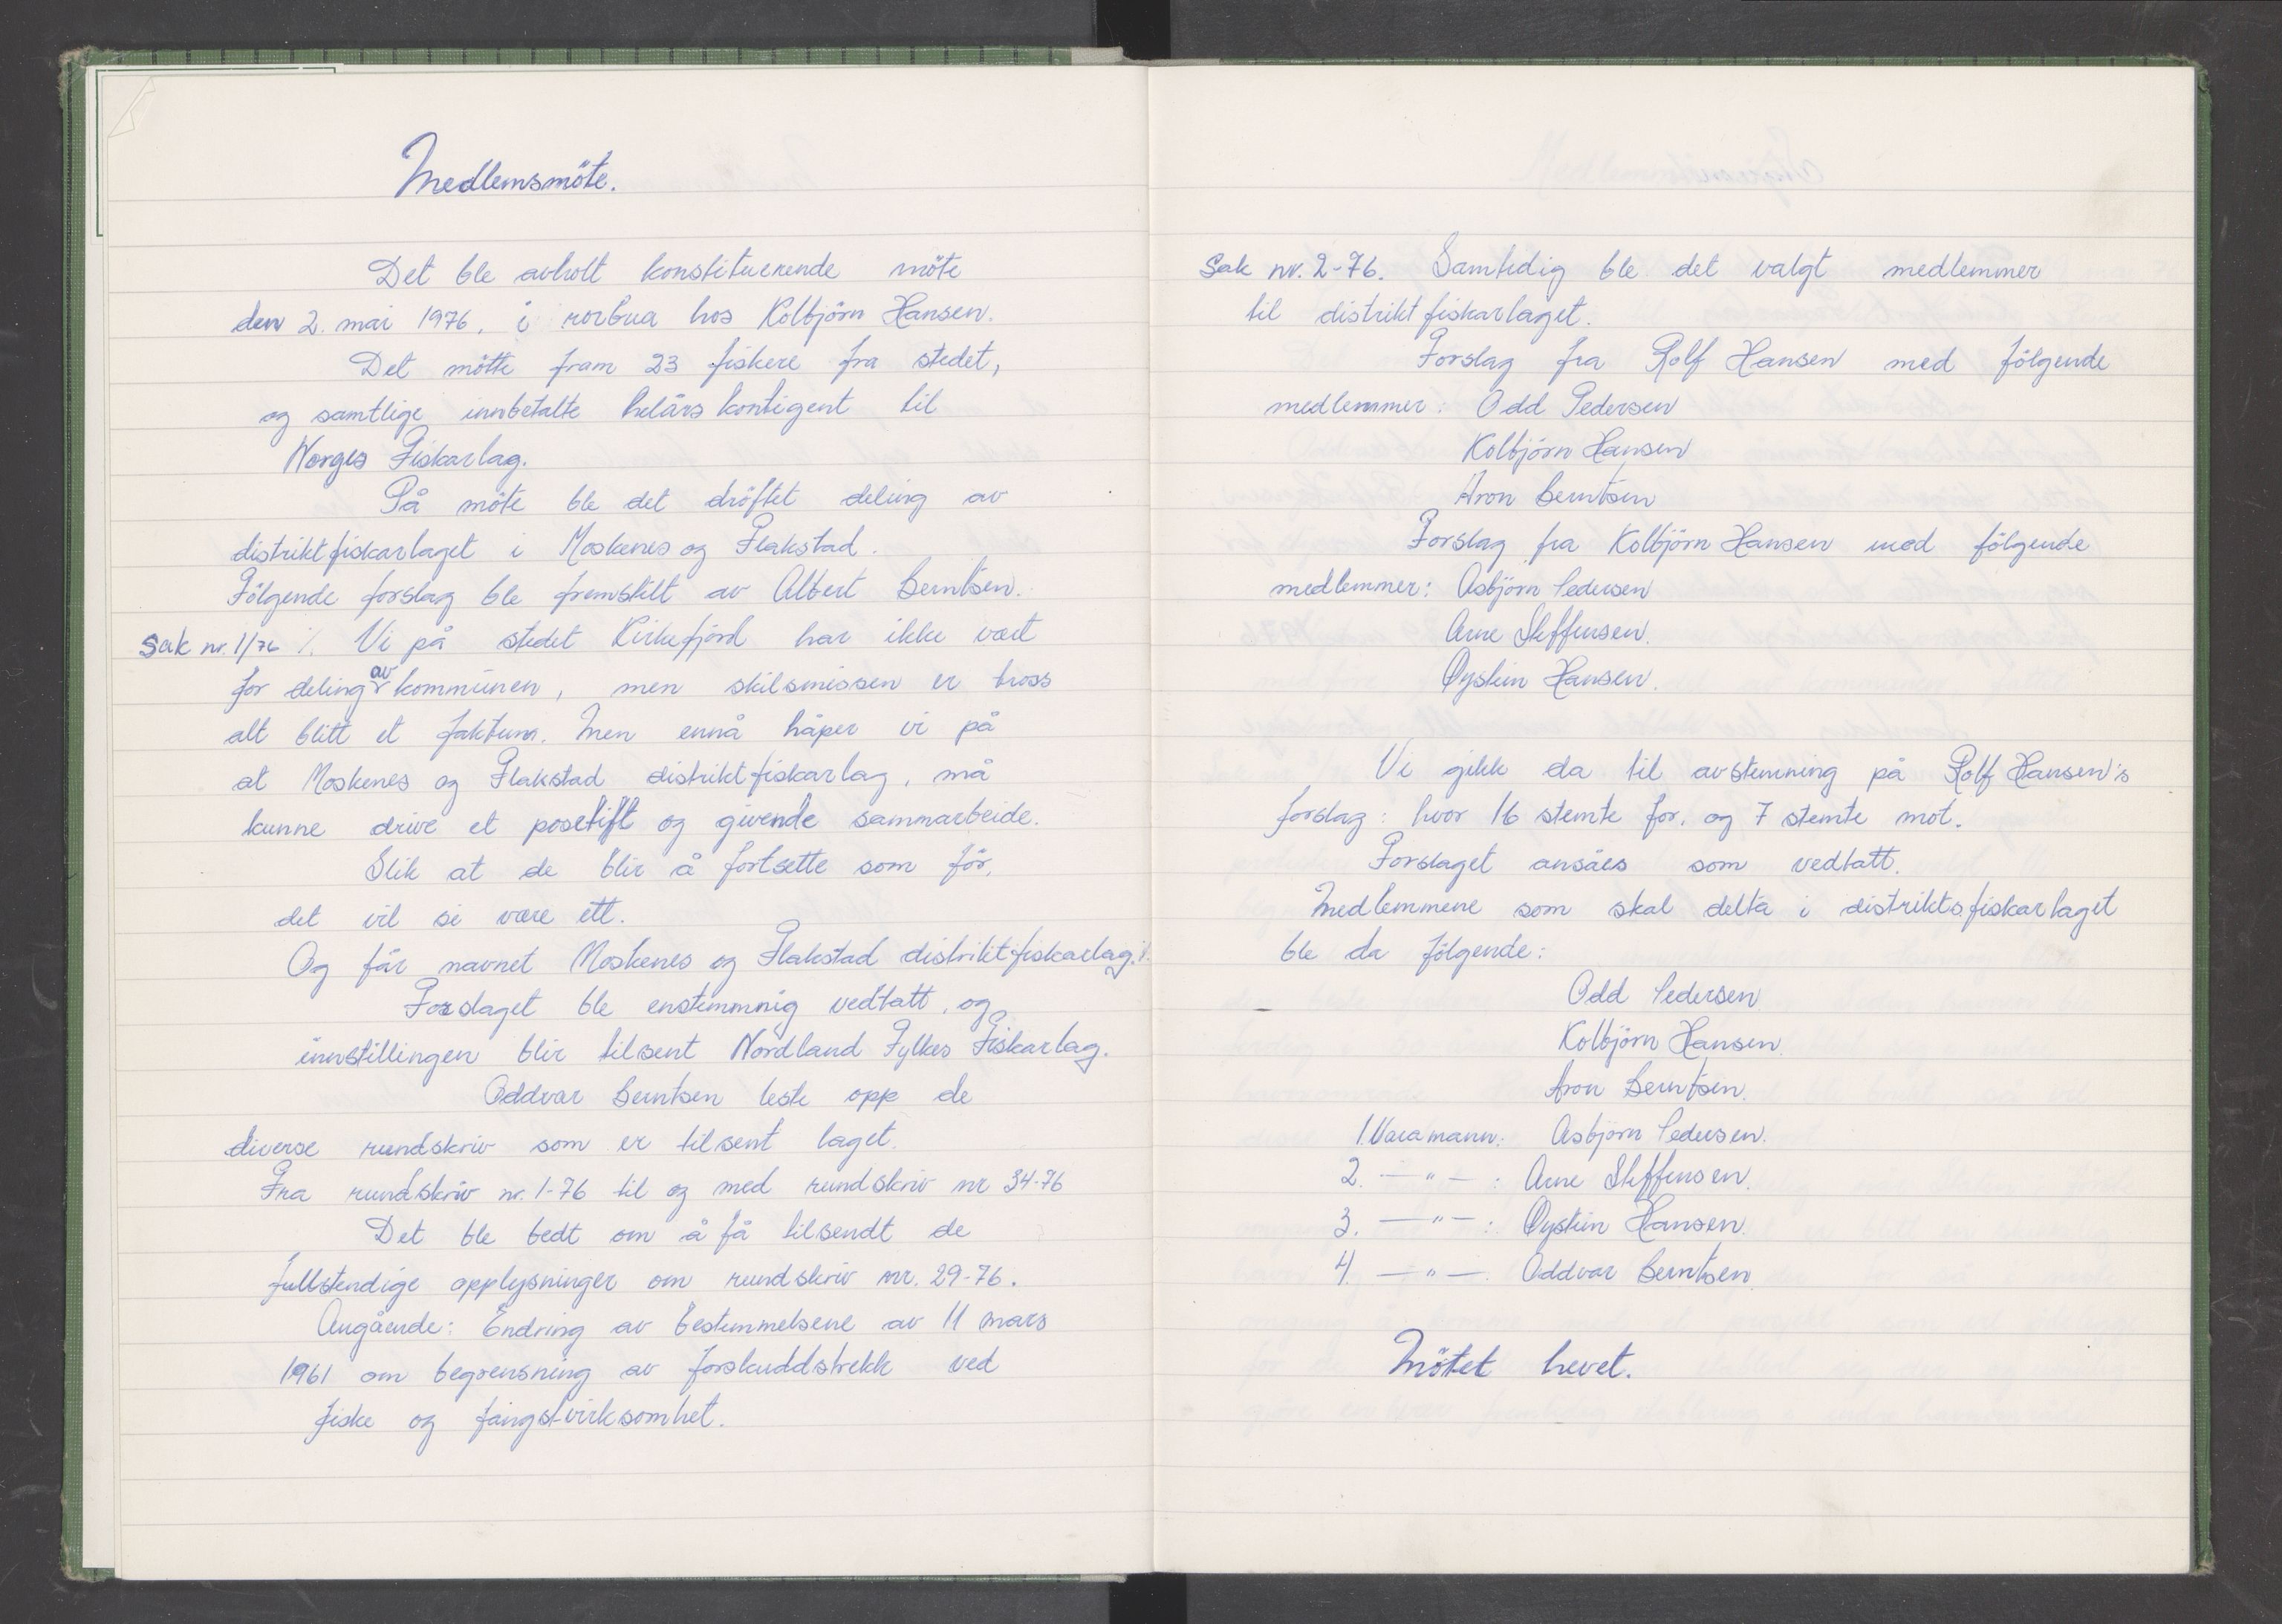 Medlemsmöte.
Det ble avholt konstituerende möte
den 2. mai 1976, i rorbua hos Kolbjörn Hansen.
Det mötte fram 23 fiskere fra stedet,
og samtlige innbetalte helårs kontigent til
Norges Fiskarlag.
På möte ble det dröftet deling av
distriktfiskarlaget i Moskenes og Flakstad.
Fölgende forslag ble fremstilt av Albert Berntsen.
Sak nr. 1/76 %. Vi på stedet Kirkefjord har ikke vært
for deling av kommunen, men skilsmissen er tross
alt blitt et faktum. Men ennå håper vi på
at Moskenes og Flakstad distriktfiskarlag, må
kunne drive et posetift og givende sammarbeide.
Slik at de blir å fortsette som för,
det vil si være ett.
Og får navnet Moskenes og Flakstad distriktfiskarlag.%.
Forslaget ble enstemmnig vedtatt, og
innstillingen blir tilsent Nordland Fylkes Fiskarlag.
Oddvar Berntsen leste opp de
diverse rundskriv som er tilsent laget.
Fra rundskriv nr. 1-76 til og med rundskriv nr 34-76
Det ble bedt om å få tilsendt de
fullstendige opplysninger om rundskriv nr. 29-76.
Angående: Endring av bestemmelsene av 11 mars
1961 om begrensning av forskuddstrekk ved
fiske og fangstvirksomhet.
Sak nr. 2-76. Samtidig ble det valgt medlemmer
til distriktfiskarlaget.
Forslag fra Rolf Hansen med fölgende
medlemmer: Odd Pedersen
Kolbjörn Hansen
Aron Berntsen
Forslag fra Kolbjörn Hansen med fölgende
medlemmer: Asbjörn Pedersen
Arne Steffensen.
Øystein Hansen.
Vi gikk da til avstemning på Rolf Hansen's
forslag: hvor 16 stemte for. og 7 stemte mot.
Forslaget ansåes som vedtatt.
Medlemmene som skal delta i distriktsfiskarlaget
ble da fölgende:
Odd Pedersen
Kolbjörn Hansen.
Aron Berntsen.
1. Varamann: Asbjörn Pedersen.
2. — " — : Arne Steffensen.
3. — " — : Øystein Hansen.
4. — " — . Oddvar Berntsen.
Mötet hevet.